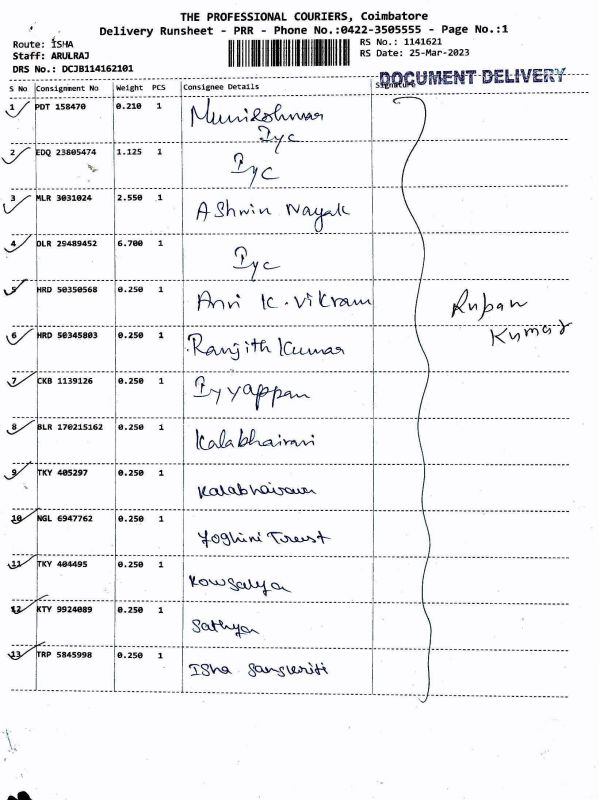 THE PROFESSIONAL COURIERS, Coimbatore
Delivery Runsheet - PRR - Phone No.:0422-3505555 - Page No.:1
Route: ISHA
Staff: ARULRAJ
DRS No.: DCJB114162101
RS No.: 1141621
RS Date: 25-Mar-2023
DOCUMENT DELIVERY
S No Consignment No Weight PCS Consignee Details Signature
1 PDT 158470 0.210 1 Munishwar
Iyc
2 EDQ 23805474 1.125 1 Iyc
3 MLR 3031024 2.550 1 Ashwin Nayak
4 DLR 29489452 6.700 1 Iyc
5 HRD 50350568 0.250 1 K. Vikram
Ruban
Kumar
6 HRD 50345803 0.250 1 Ranjith Kumar
7 CKB 1139126 0.250 1 Iyyappan
8 BLR 170215162 0.250 1 Kalabhairavi
9 TKY 405297 0.250 1 Kalabhairava
10 NGL 6947762 0.250 1 Yoghini Trust
11 TKY 404495 0.250 1 Kowsalya
12 KTY 9924089 0.250 1 Sathya
13 TRP 5845998 0.250 1 Isha Sanskriti